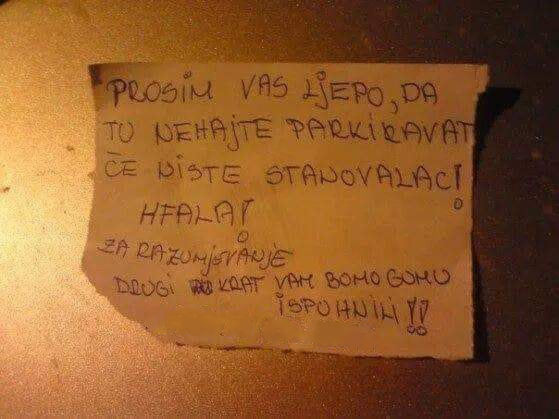 PROSIM VAS LJEPO, DA
TU NEHAJTE PARKIRAVAT
ČE NISTE STANOVALAC!
HFALA!
ZA RAZUMJEVANJE
DRUGI KRAT VAM BOMO GUMU
ISPOHNILI!!